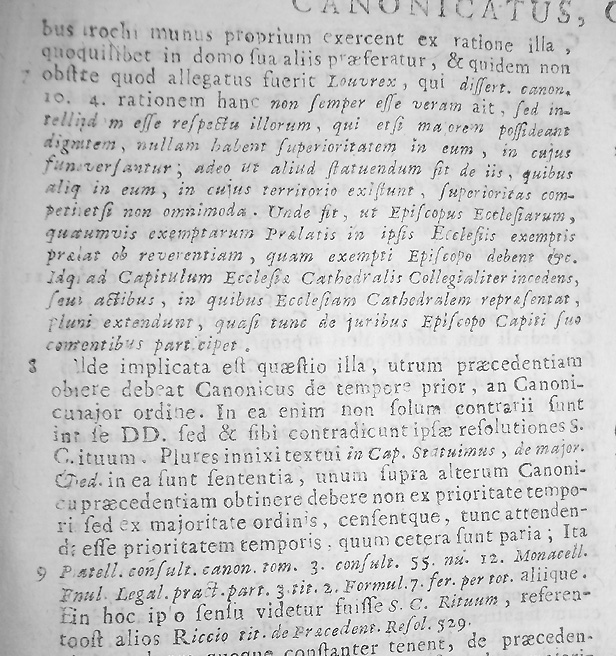 CANONICATUS,
bus rochi munus proprium exercent ex ratione illa,
quoquilibet in domo sua aliis præferatur, & quidem non
7 obste quod allegatus fuerit Louvrex, qui dissert. canon.
10. 4. rationem hanc non semper esse veram ait, sed in-
m esse respectu illorum, qui etsi majorem possideant
nullam habent superioritatem in eum, in cujus
versantur; adeo ut aliud statuendum sit de iis, quibus
aliq in eum, in cujus territorio existunt, superioritas com-
petietsi non omnimoda. Unde fit, ut Episcopus Ecclesiarum,
exemptarum Prælatis in ipsis Ecclesiis exemptis
ob reverentiam, quam exempti Episcopo debent &c.
ad Capitulum Ecclesiæ Cathedralis Collegialiter incedens,
actibus, in quibus Ecclesiam Cathedralem repræsentat,
extendunt, quasi tunc de juribus Episcopo Capiti suo
participet.
8 lde implicata est quæstio illa, utrum præcedentiam
debeat Canonicus de tempore prior, an Canoni-
major ordine. In ea enim non solum contrarii sunt
se DD. sed & sibi contradicunt ipsæ resolutiones S.
C. ituum. Plures innixi textui in Cap. Statuimus, de major.
in ea sunt sententia, unum supra alterum Canoni-
præcedentiam obtinere debere non ex prioritate tempo-
ri sed ex majoritate ordinis, censentque, tunc attenden-
esse prioritatem temporis. quum cetera sunt paria; Ita
9 consult. canon. tom. 3. consult. 55. nu. 12. Monacell.
Legal. pract. part. 3. tit. 2. Formul. 7. fer. per tot. aliique.
in hoc ip'o sensu videtur fuisse S. C. Rituum, referen-
alios Riccio tit. de Præcedent. Resol. 529.
quoque constanter tenent, de præceden-